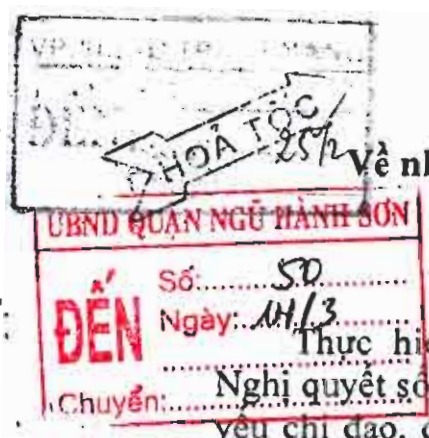 ĐẾ
HOẢ TỐC
25/2
Về nh
UBND QUẬN NGŨ HÀNH SƠN
ĐẾN
Số: 50
Ngày: 14/3
Thực hiệ
Chuyển:
Nghị quyết số
yêu chỉ đạo,